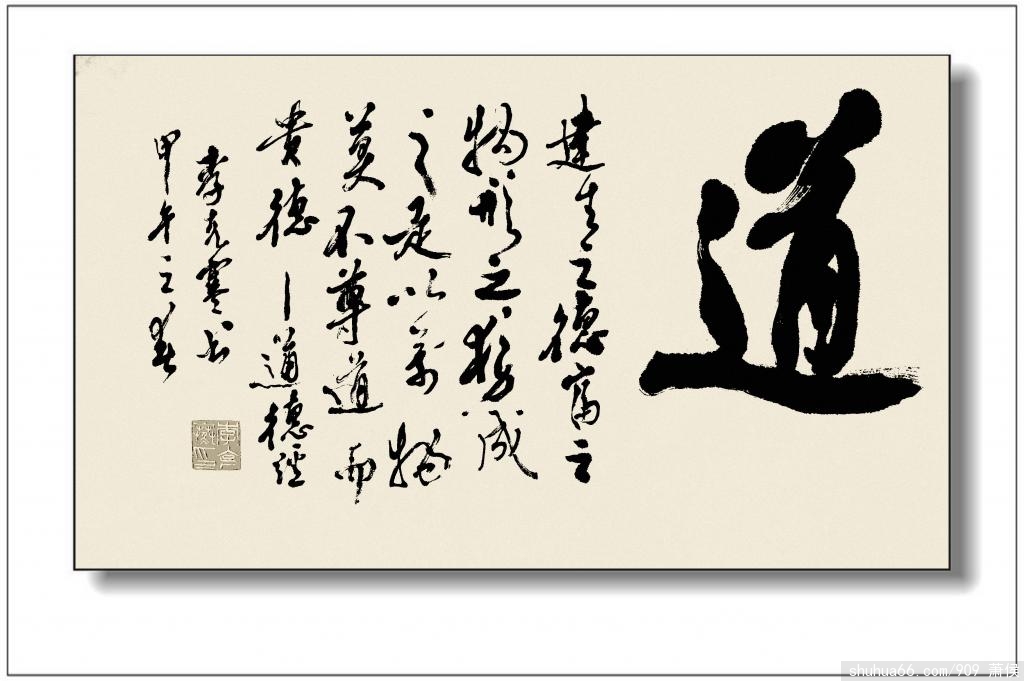 道
生之德畜之
物形之勢成
之是以萬物
莫不尊道而
貴德一道德經
李克寒书
甲午之春
shuhua66.com/909 萧侯